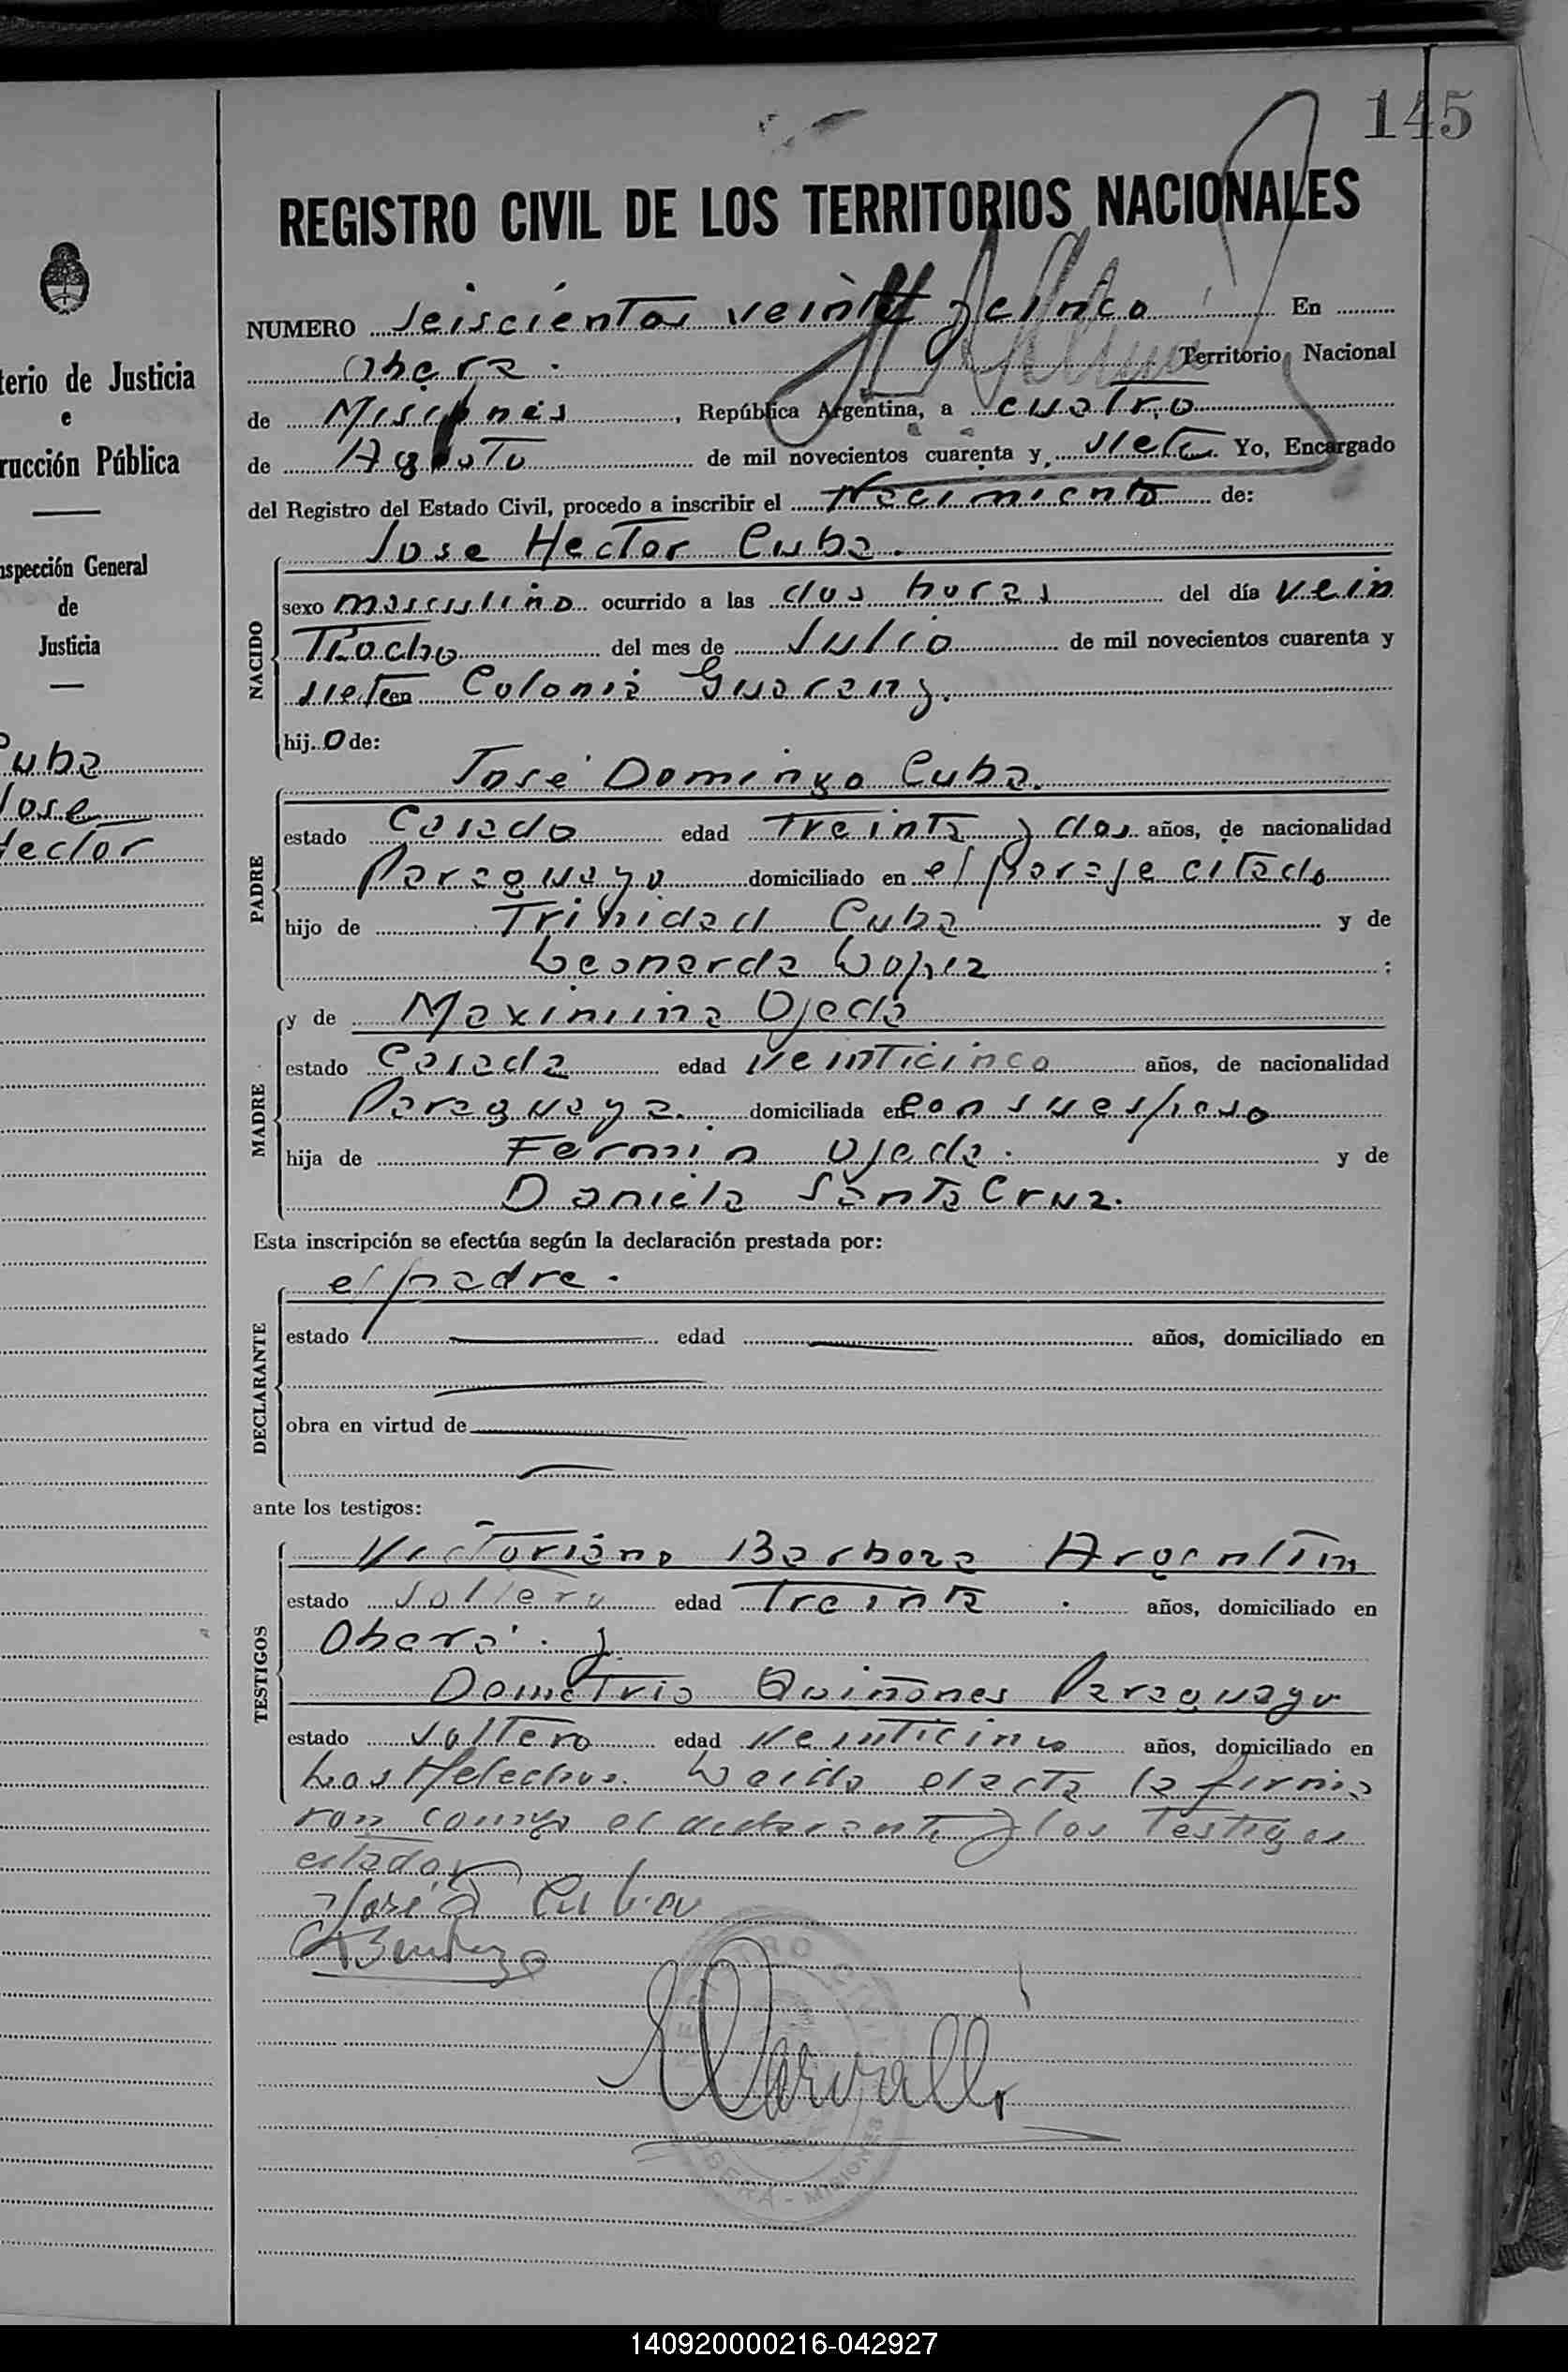 145
REGISTRO CIVIL DE LOS TERRITORIOS NACIONALES
NUMERO Seiscientos veinte y cinco En
Obera. Territorio Nacional
de Misiones, República Argentina, a cuatro
de Agosto de mil novecientos cuarenta y siete Yo, Encargado
del Registro del Estado Civil, procedo a inscribir el Nacimiento de:
Jose Hector Cuba.
NACIDO
sexo masculino ocurrido a las dos horas del día vein
tiocho del mes de Julio de mil novecientos cuarenta y
siete en Colonia Guarany.
hijo de:
José Domingo Cuba.
PADRE
estado Casado edad Treinta y dos años, de nacionalidad
Paraguayo domiciliado en el paraje citado
hijo de Trinidad Cuba y de
Leonarda Lopez ;
y de Maximina Ojeda
MADRE
estado Casada edad Veinticinco años, de nacionalidad
Paraguaya. domiciliada en con su esposo
hija de Fermin Ojeda. y de
Daniela Santa Cruz.
Esta inscripción se efectúa según la declaración prestada por:
el padre.
DECLARANTE
estado edad años, domiciliado en
obra en virtud de
ante los testigos:
TESTIGOS
Victoriano Barboza Argentin
estado Soltero edad Treinta años, domiciliado en
Oberá. y
Demetrio Quiñones Paraguayo
estado Soltero edad Veinticinco años, domiciliado en
Los Helechos. Leida el acta la firma
ron conmigo el declarante y los Testigos
citados
José D Cuba
REGISTRO CIVIL
OBERA - MISIONES
terio de Justicia
e
rucción Pública
nspección General
de
Justicia
Cuba
Jose
Hector
140920000216-042927